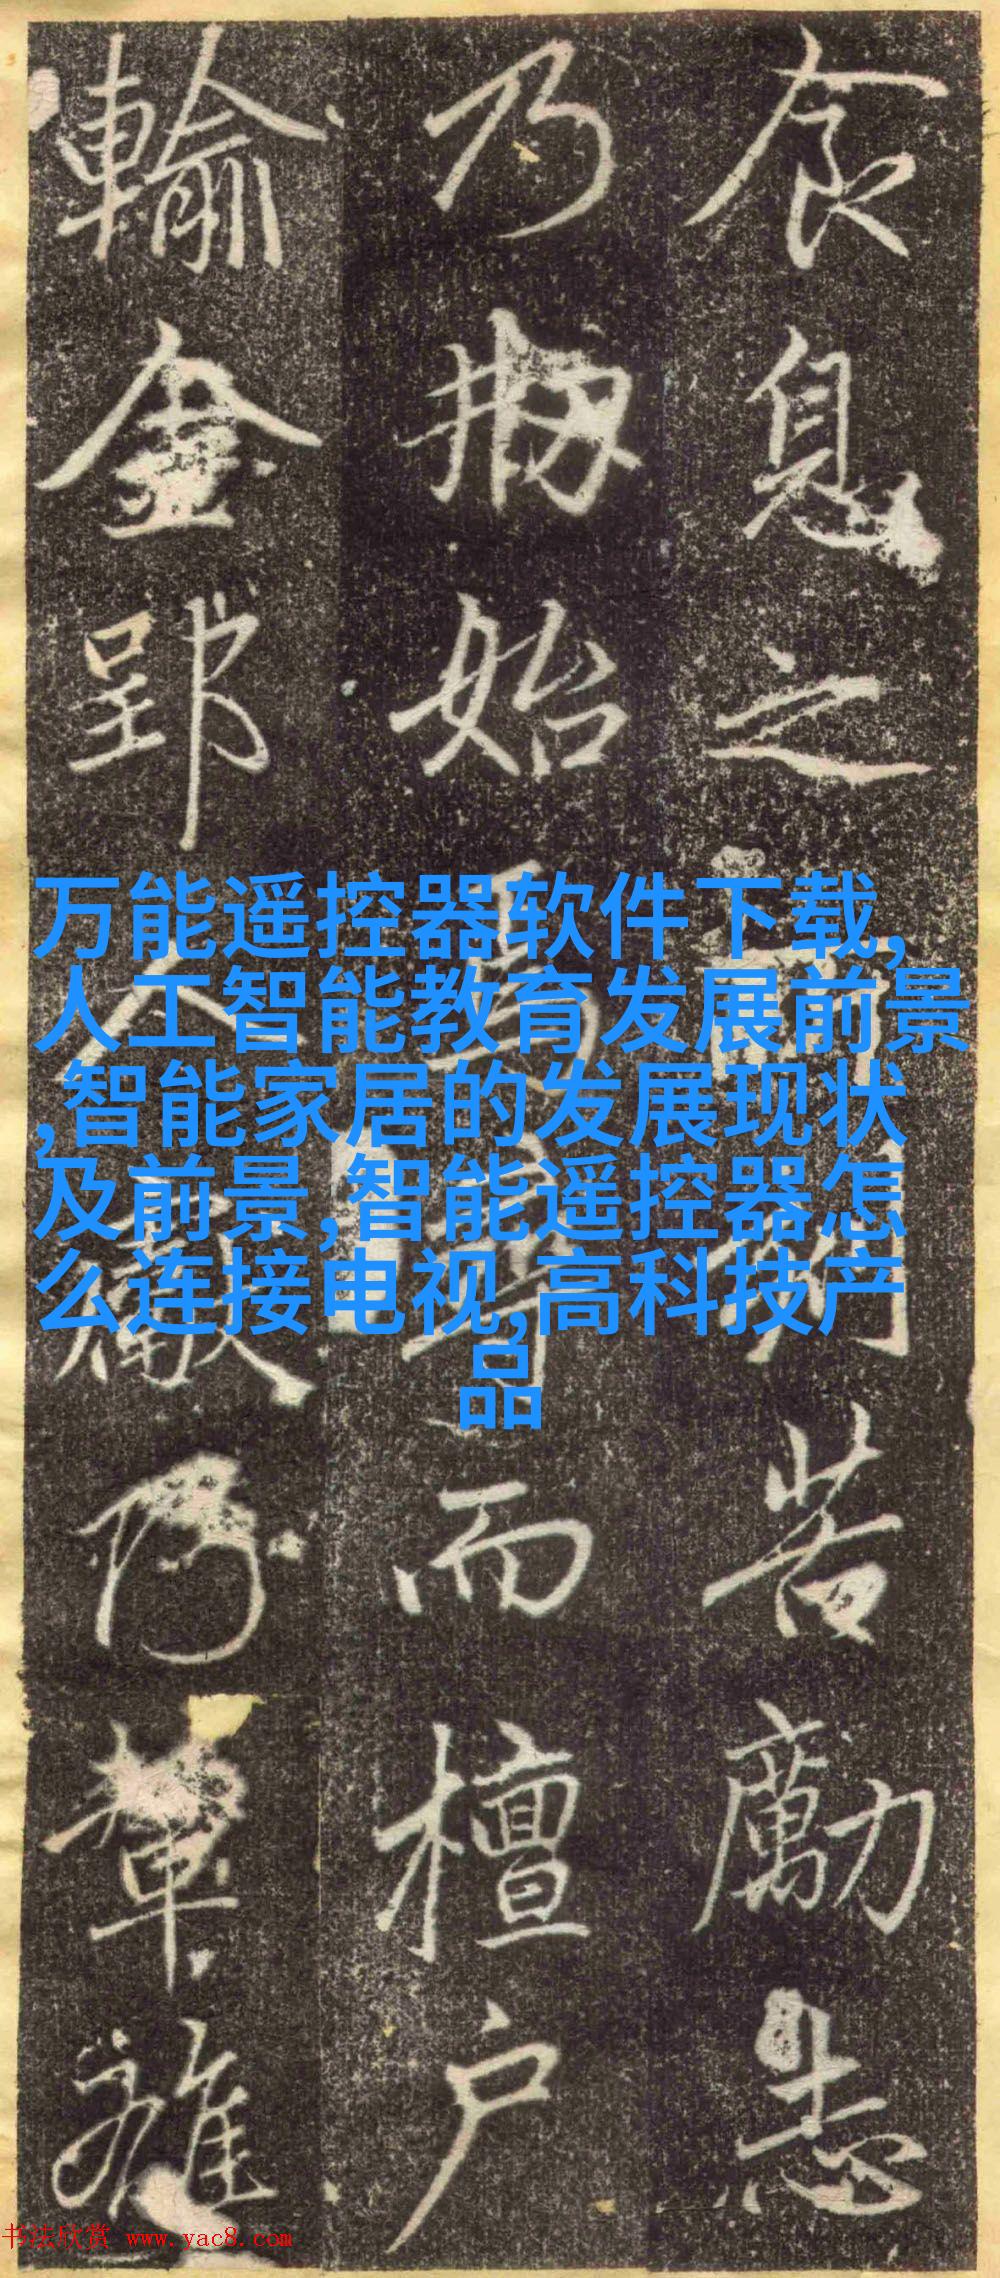 食息之
苦勵志
乃
始
而檀户
輸金郢人
雖
万能遥控器软件下载,
人工智能教育发展前景
,智能家居的发展现状
及前景,智能遥控器怎
么连接电视,高科技产
品
书法欣赏 www.yac8.com